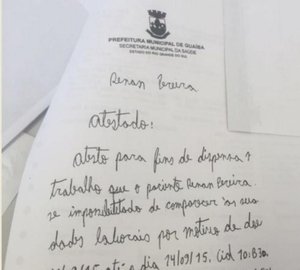 PREFEITURA MUNICIPAL DE GUAÍBA
SECRETARIA MUNICIPAL DA SAÚDE
ESTADO DO RIO GRANDE DO SUL
Renan Pereira
Atestado:
Atesto para fins de dispensa
trabalho que o paciente Renan Pereira
se impossibilitado de comparecer as sua
dades laborais por motivo de doe
até o dia 14/09/15. (id 10.830.